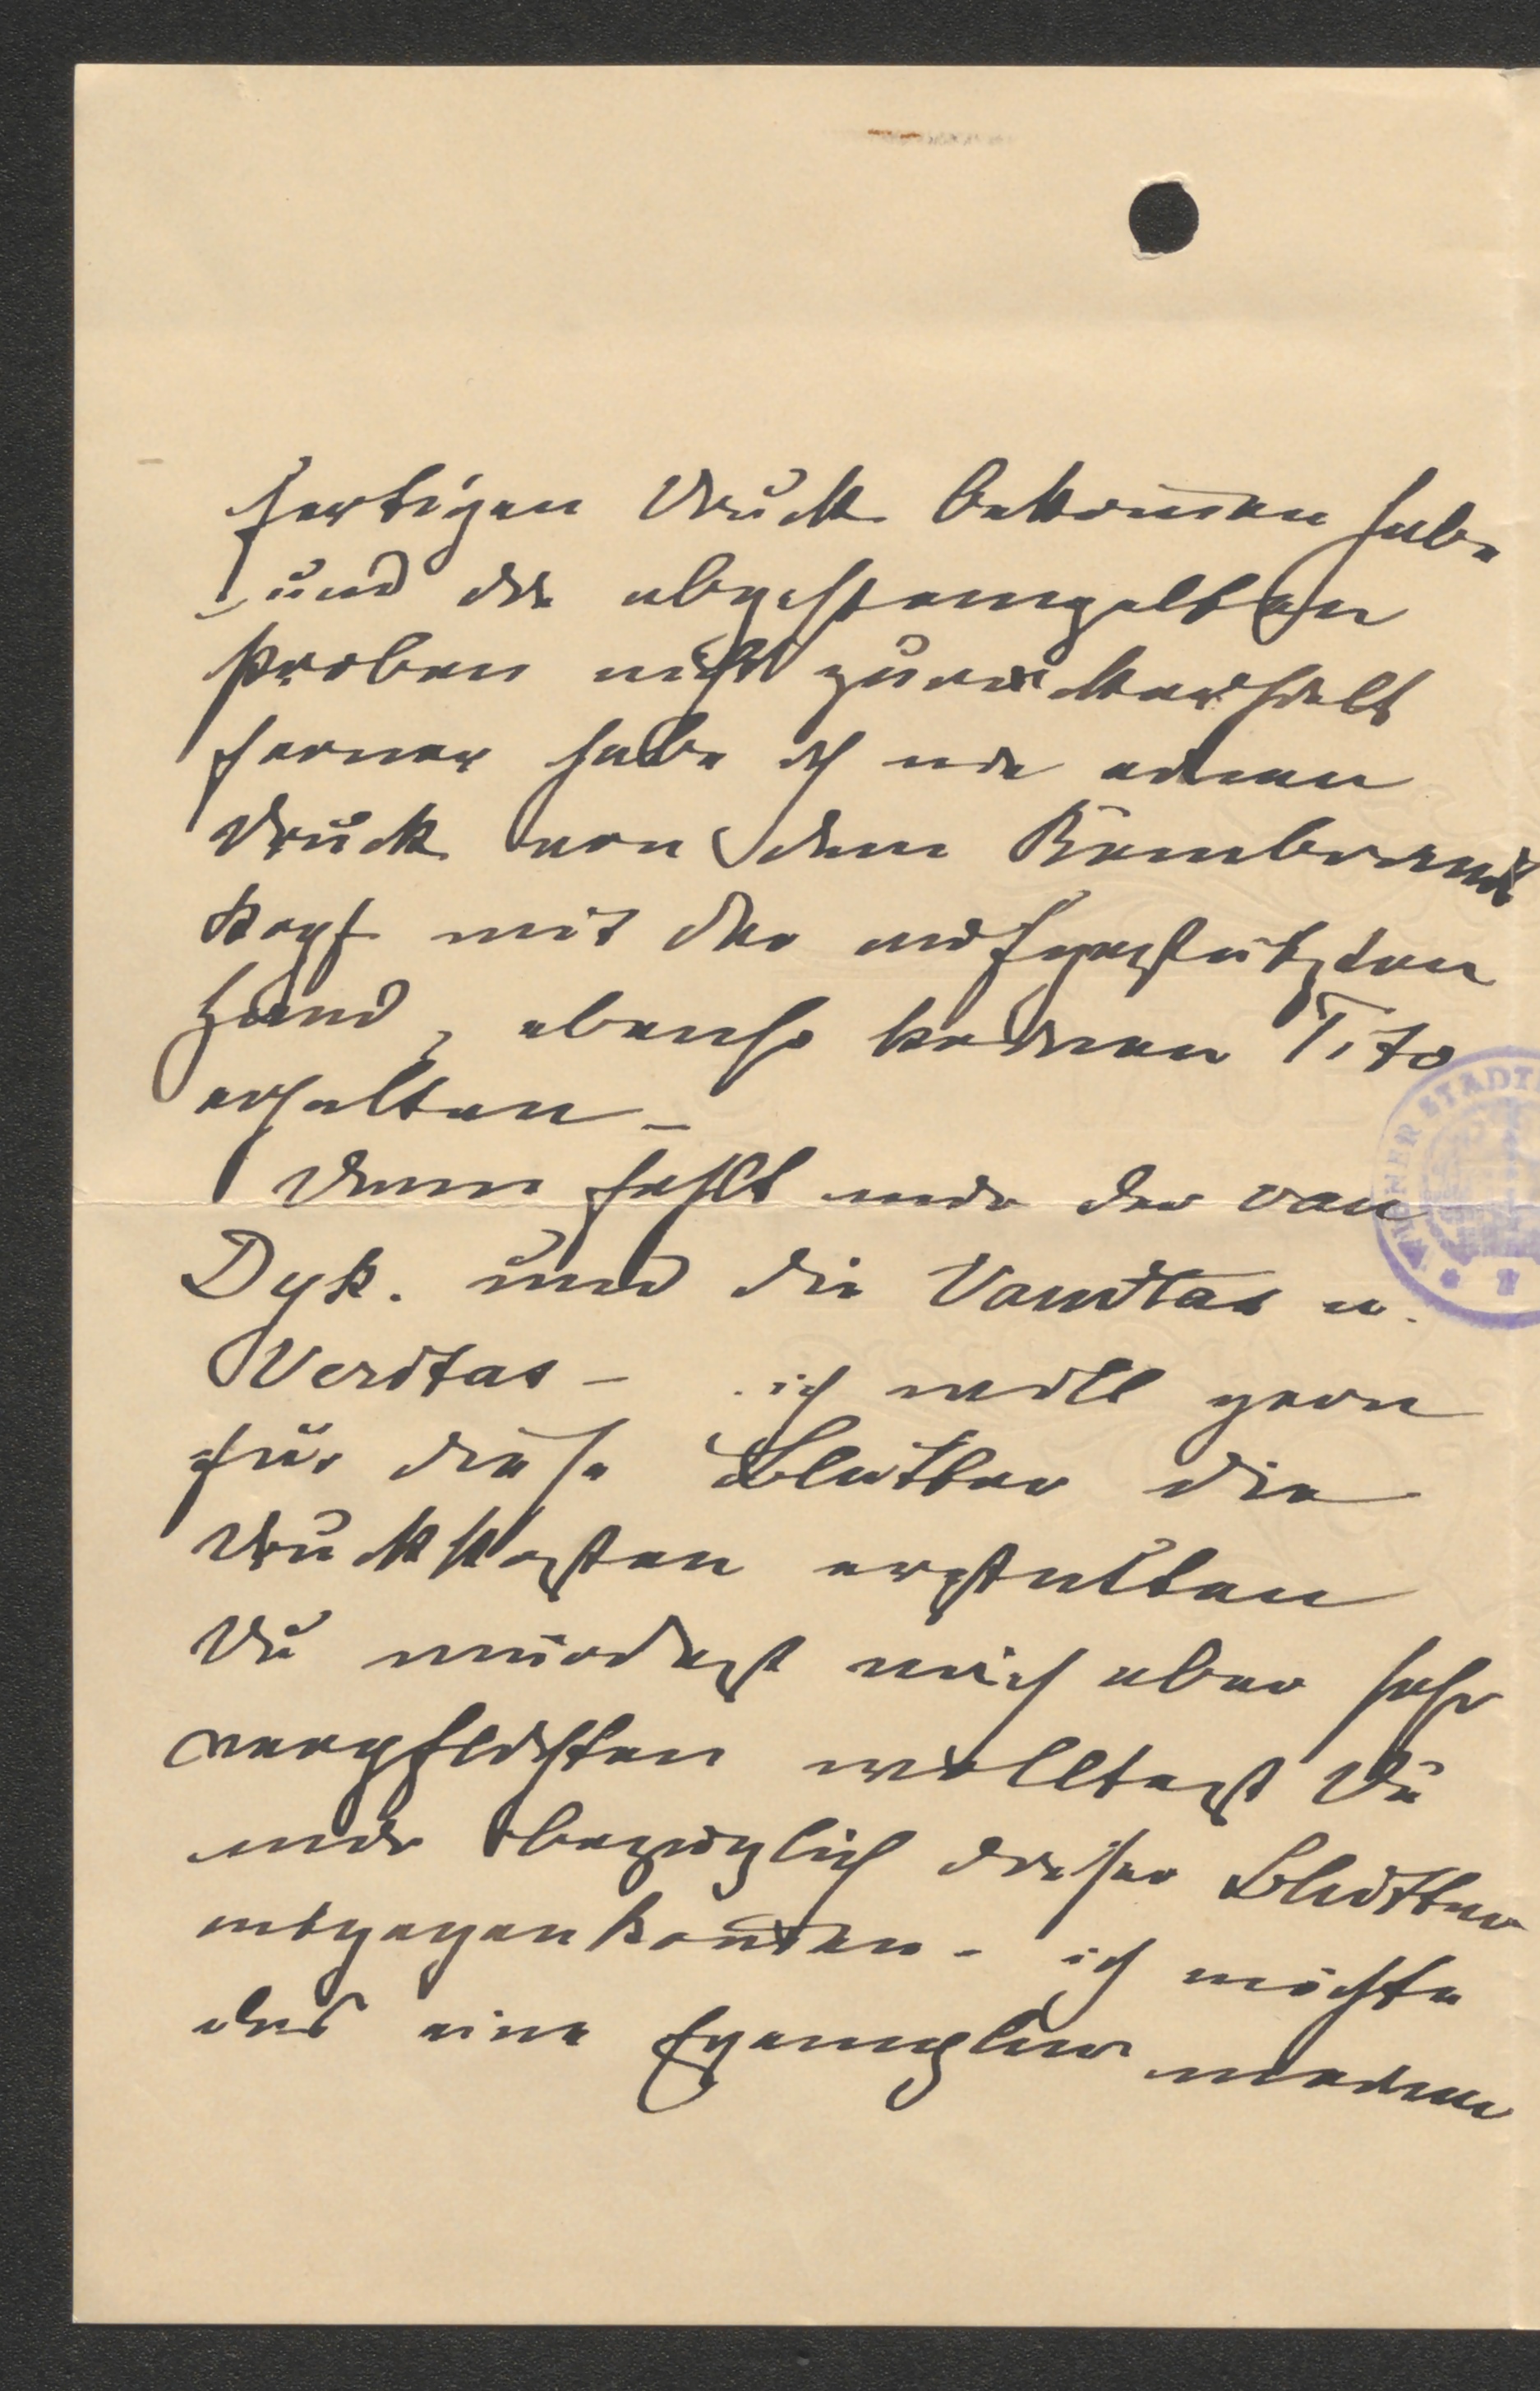 fertigen Druck bekom̄en habe
und die abgestempelten
Proben nicht zurückerhielt
ferner habe ich nie einen
Druck von dem Rembrandt
kopf mit der aufgestützten
Hand, ebenso keinen Tito
erhalten –
Dann fehlt mir der van
Dyk. und die Vanitas u.
Veritas – ich will gern
für diese Blätter die
Druckkosten erstatten
Du würdest mich aber sehr
verpflichten wolltest Du
mir bezüglich dieser Blätter
entgegenkom̄en – ich möchte
das eine Exemplar meiner
STADT